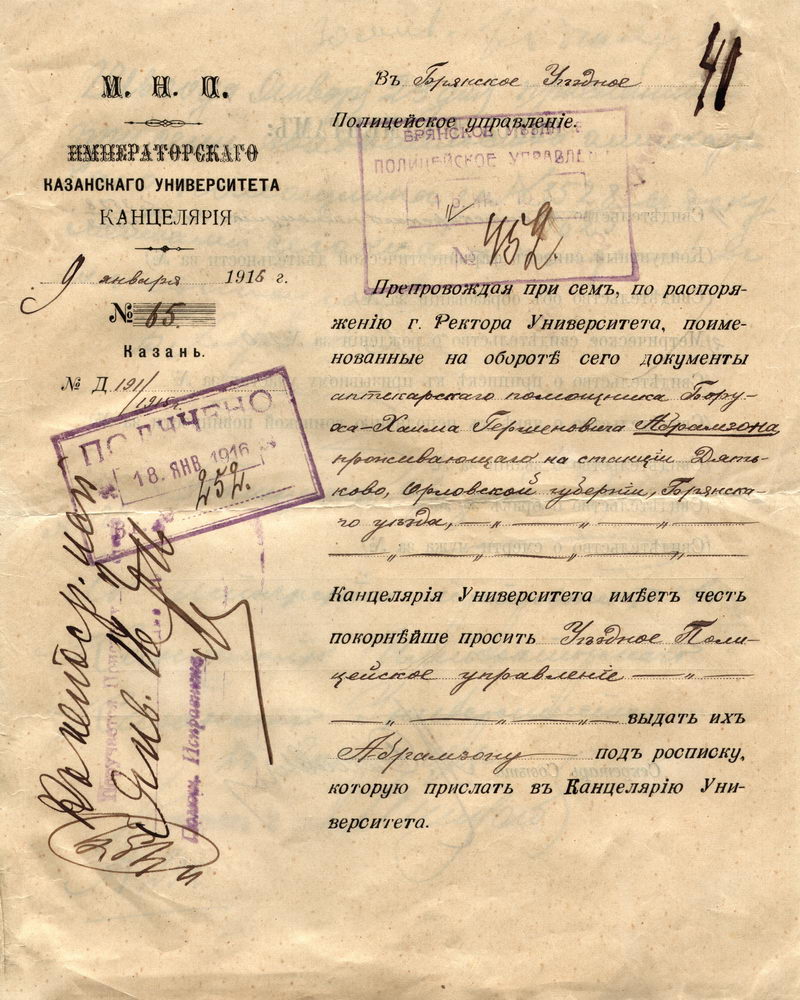 М. Н. П.
ИМПЕРАТОРСКАГО
КАЗАНСКАГО УНИВЕРСИТЕТА
КАНЦЕЛЯРІЯ
9 января 1916 г.
№ 65.
Казань.
№ Д 191/
1915
ПОЛУЧЕНО
18. ЯНВ. 1916
252.
Янв. 16
41
Въ Брянское Уѣздное
Полицейское управленіе.
БРЯНСКОЕ
ПОЛИЦЕЙСКОЕ УПРАВЛЕ
№ 452
Препровождая при семъ, по распоря-
женію г. Ректора Университета, поиме-
нованные на оборотѣ сего документы
аптекарскаго помощника Бору-
ха-Хаима Гершеновича Абрамзона
проживающаго на станціи Дять-
ково, Орловской губерніи, Брянска-
го уѣзда, — „ — „ — „ —
— „ — „ — „ — „ —
Канцелярія Университета имѣетъ честь
покорнѣйше просить Уѣздное Поли-
цейское управленіе — „ —
— „ — „ — „ — выдать ихъ
Абрамзону — подъ росписку,
которую прислать въ Канцелярію Уни-
верситета.